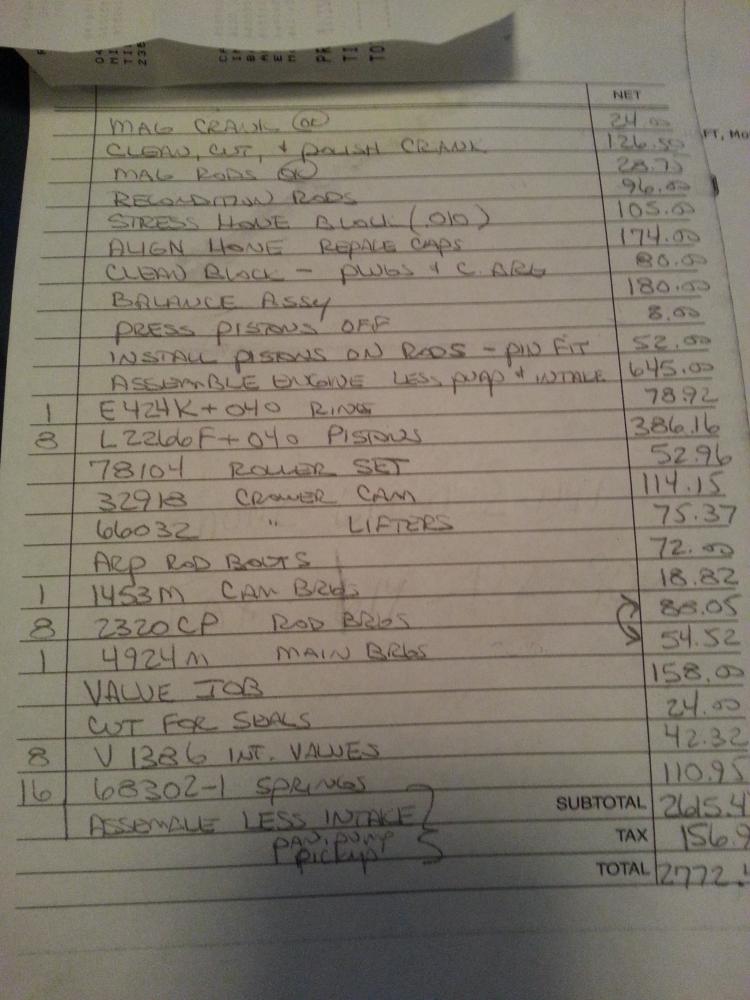 NET
MAG CRANK OK 24.00
CLEAN, CUT, & POLISH CRANK 126.50
MAG RODS OK 28.75
RECONDITION RODS 96.00
STRESS HONE BLOCK (.010) 105.00
ALIGN HONE REPALE CAPS 174.00
CLEAN BLOCK - PLUGS & C. BRG 80.00
BALANCE ASSY 180.00
PRESS PISTONS OFF 8.00
INSTALL PISTONS ON RODS - PIN FIT 52.00
ASSEMBLE ENGINE LESS PUMP & INTAKE 645.00
1 E424K+040 RINGS 78.92
8 L2266F+040 PISTONS 386.16
78104 ROLLER SET 52.96
32918 CROWER CAM 114.15
66032 " LIFTERS 75.37
ARP ROD BOLTS 72.00
1 1453M CAM BRGS 18.82
8 2320CP ROD BRGS 88.05
1 4924M MAIN BRGS 54.52
VALUE JOB 158.00
CUT FOR SEALS 24.00
8 V1386 INT. VALUES 42.32
16 68302-1 SPRINGS 110.95
ASSEMBLE LESS INTAKE SUBTOTAL 2615.4
PAN, PUMP TAX 156.9
PICKUP TOTAL 2772.
FT, MO